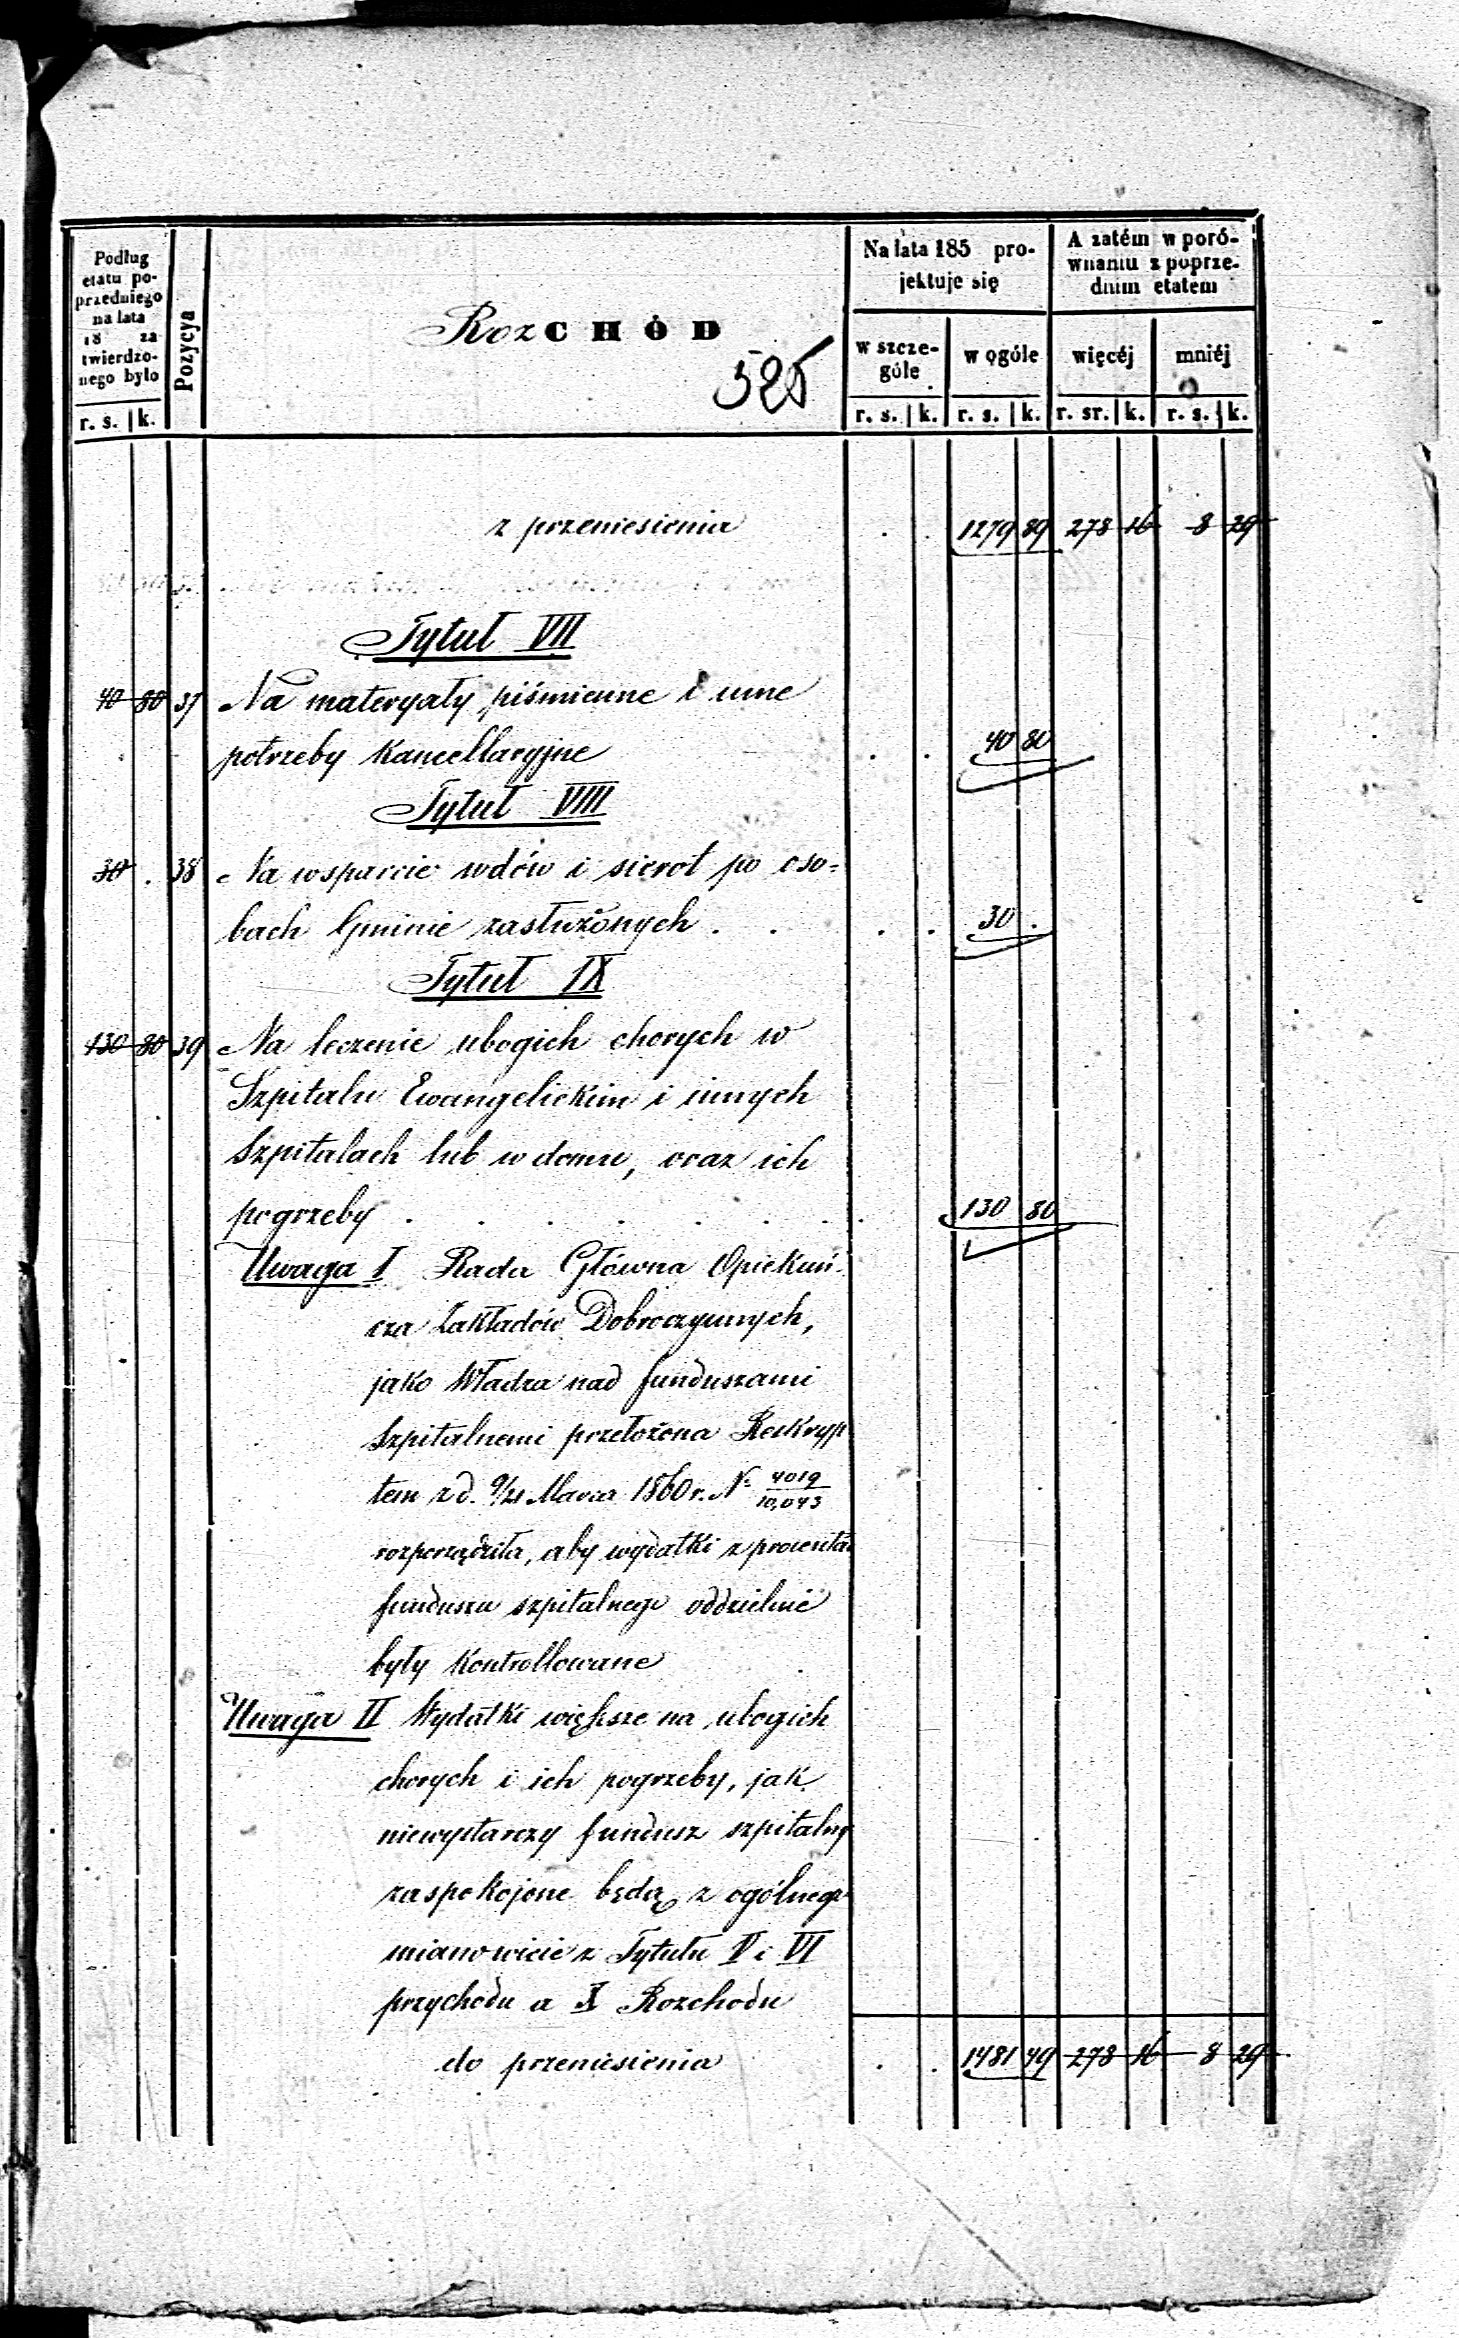 Podług etatu poprzedniego na lata 18 za twierdzonego było
Pozycya
RozCHÓD
525
Na lata 185 projektuje się
A zatém w porównaniu z poprzednim etatem
w szczególe
w ogóle
więcéj
mniéj
r. s. | k.
r. s. | k.
r. s. | k.
r. sr. | k.
r. s. | k.
z przeniesienia . . 1279 89 278 16 8 29
Tytuł VII
40 80 37 Na materyały piśmienne i inne
potrzeby kancellaryjne . . 40 80
Tytuł VIII
30 . 38 Na wsparcie wdów i sierot po oso=
bach Gminie zasłużonych . . . . 30 .
Tytuł IX
130 80 39 Na leczenie ubogich chorych w
Szpitalu Ewangelickim i innych
Szpitalach lub w domu, oraz ich
pogrzeby . . . . . . . . 130 80
Uwaga I Rada Główna Opiekuń-
cza Zakładów Dobroczynnych,
jako Władza nad funduszami
Szpitalnemi przełożona Reskryp
tem z d. 9/21 Marca 1860 r. N° 4019/10,043
rozporządziła, aby wydatki z procentu
funduszu szpitalnego oddzielnie
były kontrollowane
Uwaga II Wydatki większe na ubogich
chorych i ich pogrzeby, jak
niewystarczy fundusz szpitalny
zaspokojone będą z ogólnego
mianowicie z Tytułu V i VI
przychodu a X Rozchodu
do przeniesienia . . 1481 49 278 16 8 29